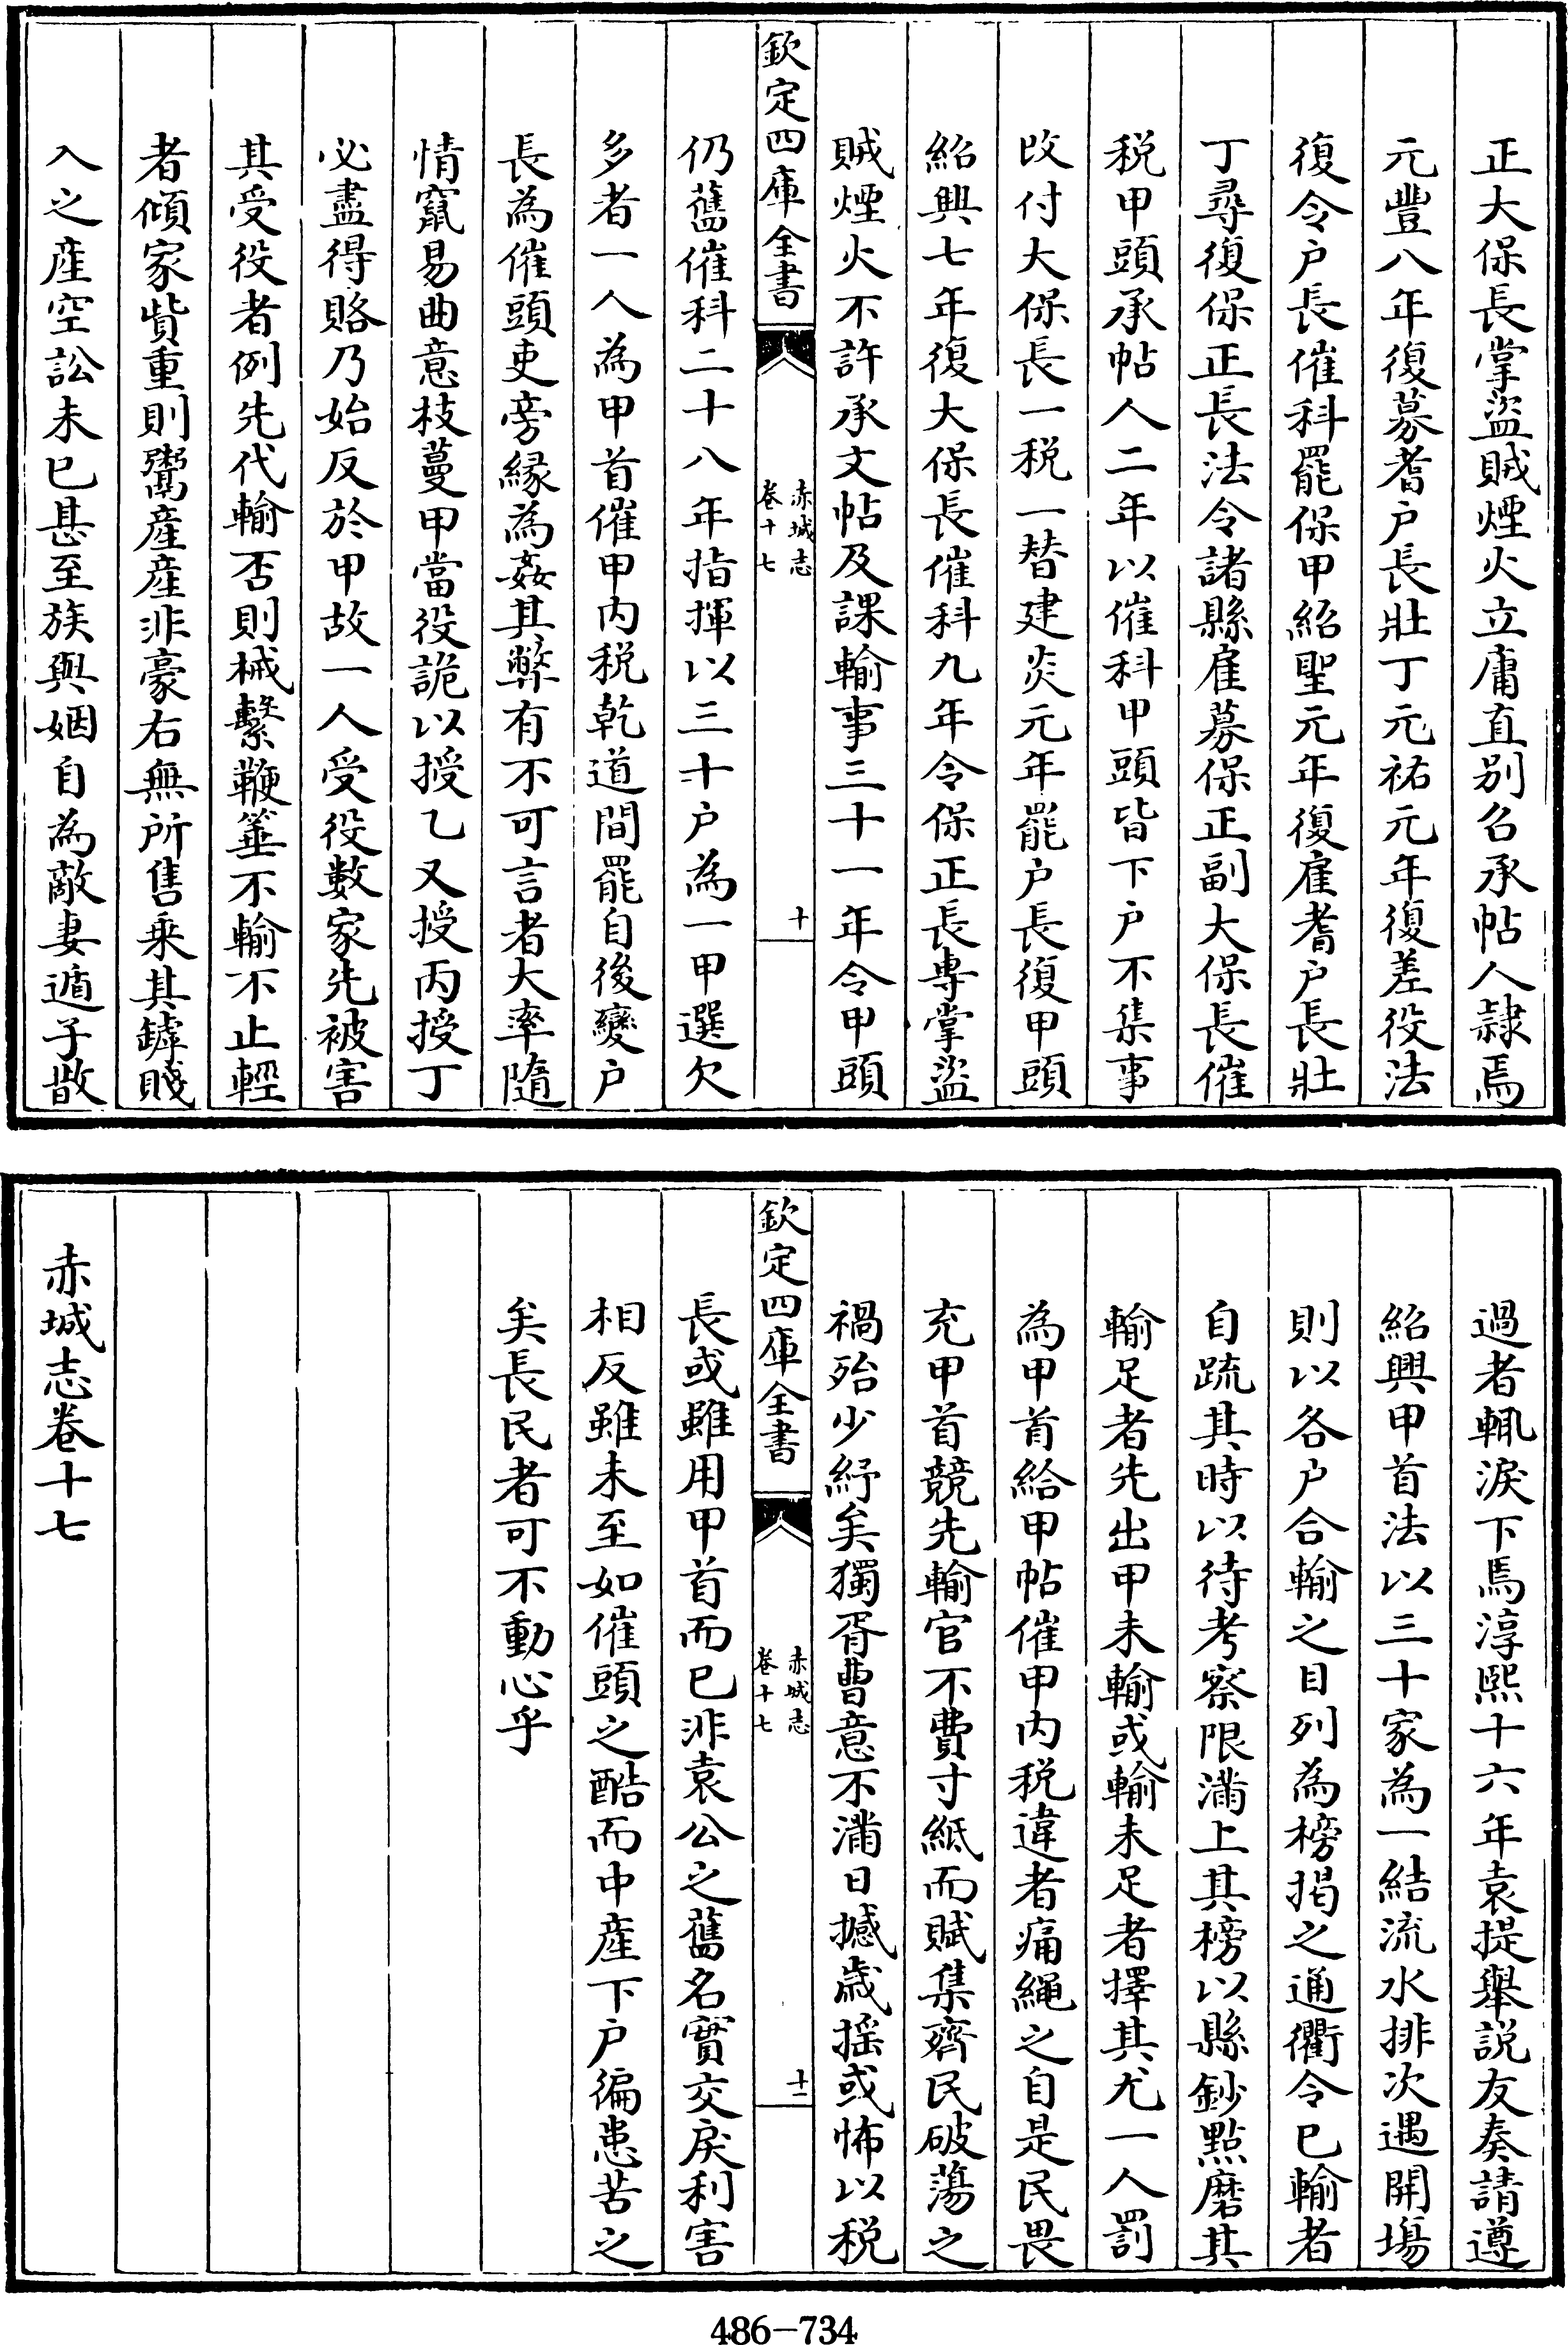 正大保長掌盜賊煙火立庸直别名承帖人隷焉
元豐八年復募耆户長壯丁元祐元年復差役法
復令户長催科罷保甲紹聖元年復雇耆户長壯
丁尋復保正長法令諸縣雇募保正副大保長催
税甲頭承帖人二年以催科甲頭皆下户不集事
改付大保長一税一替建炎元年罷户長復甲頭
紹興七年復大保長催科九年令保正長專掌盜
賊煙火不許承文帖及課輸事三十一年令甲頭
欽定四庫全書
赤城志
卷十七
十
仍舊催科二十八年指揮以三十户為一甲選欠
多者一人為甲首催甲内税乾道間罷自後變户
長為催頭吏旁緣為姦其弊有不可言者大率隨
情竄易曲意枝蔓甲當役詭以授乙又授丙授丁
必盡得賂乃始反於甲故一人受役數家先被害
其受役者例先代輸否則械繫鞭箠不輸不止輕
者傾家貲重則鬻產產非豪右無所售乘其罅賤
入之產空訟未已甚至族與姻自為敵妻遁子散
過者輒淚下焉淳熙十六年袁提舉説友奏請遵
紹興甲首法以三十家為一結流水排次遇開塲
則以各户合輸之目列為榜揭之通衢令已輸者
自疏其時以待考察限滿上其榜以縣鈔點磨其
輸足者先出甲未輸或輸未足者擇其尤一人罰
為甲首給甲帖催甲内税違者痛繩之自是民畏
充甲首競先輸官不費寸紙而賦集齊民破蕩之
禍殆少紓矣獨胥曹意不滿日撼歲摇或怖以税
欽定四庫全書
赤城志
卷十七
十一
長或雖用甲首而已非袁公之舊名實交戾利害
相反雖未至如催頭之酷而中產下户徧患苦之
矣長民者可不動心乎
赤城志卷十七
486-734